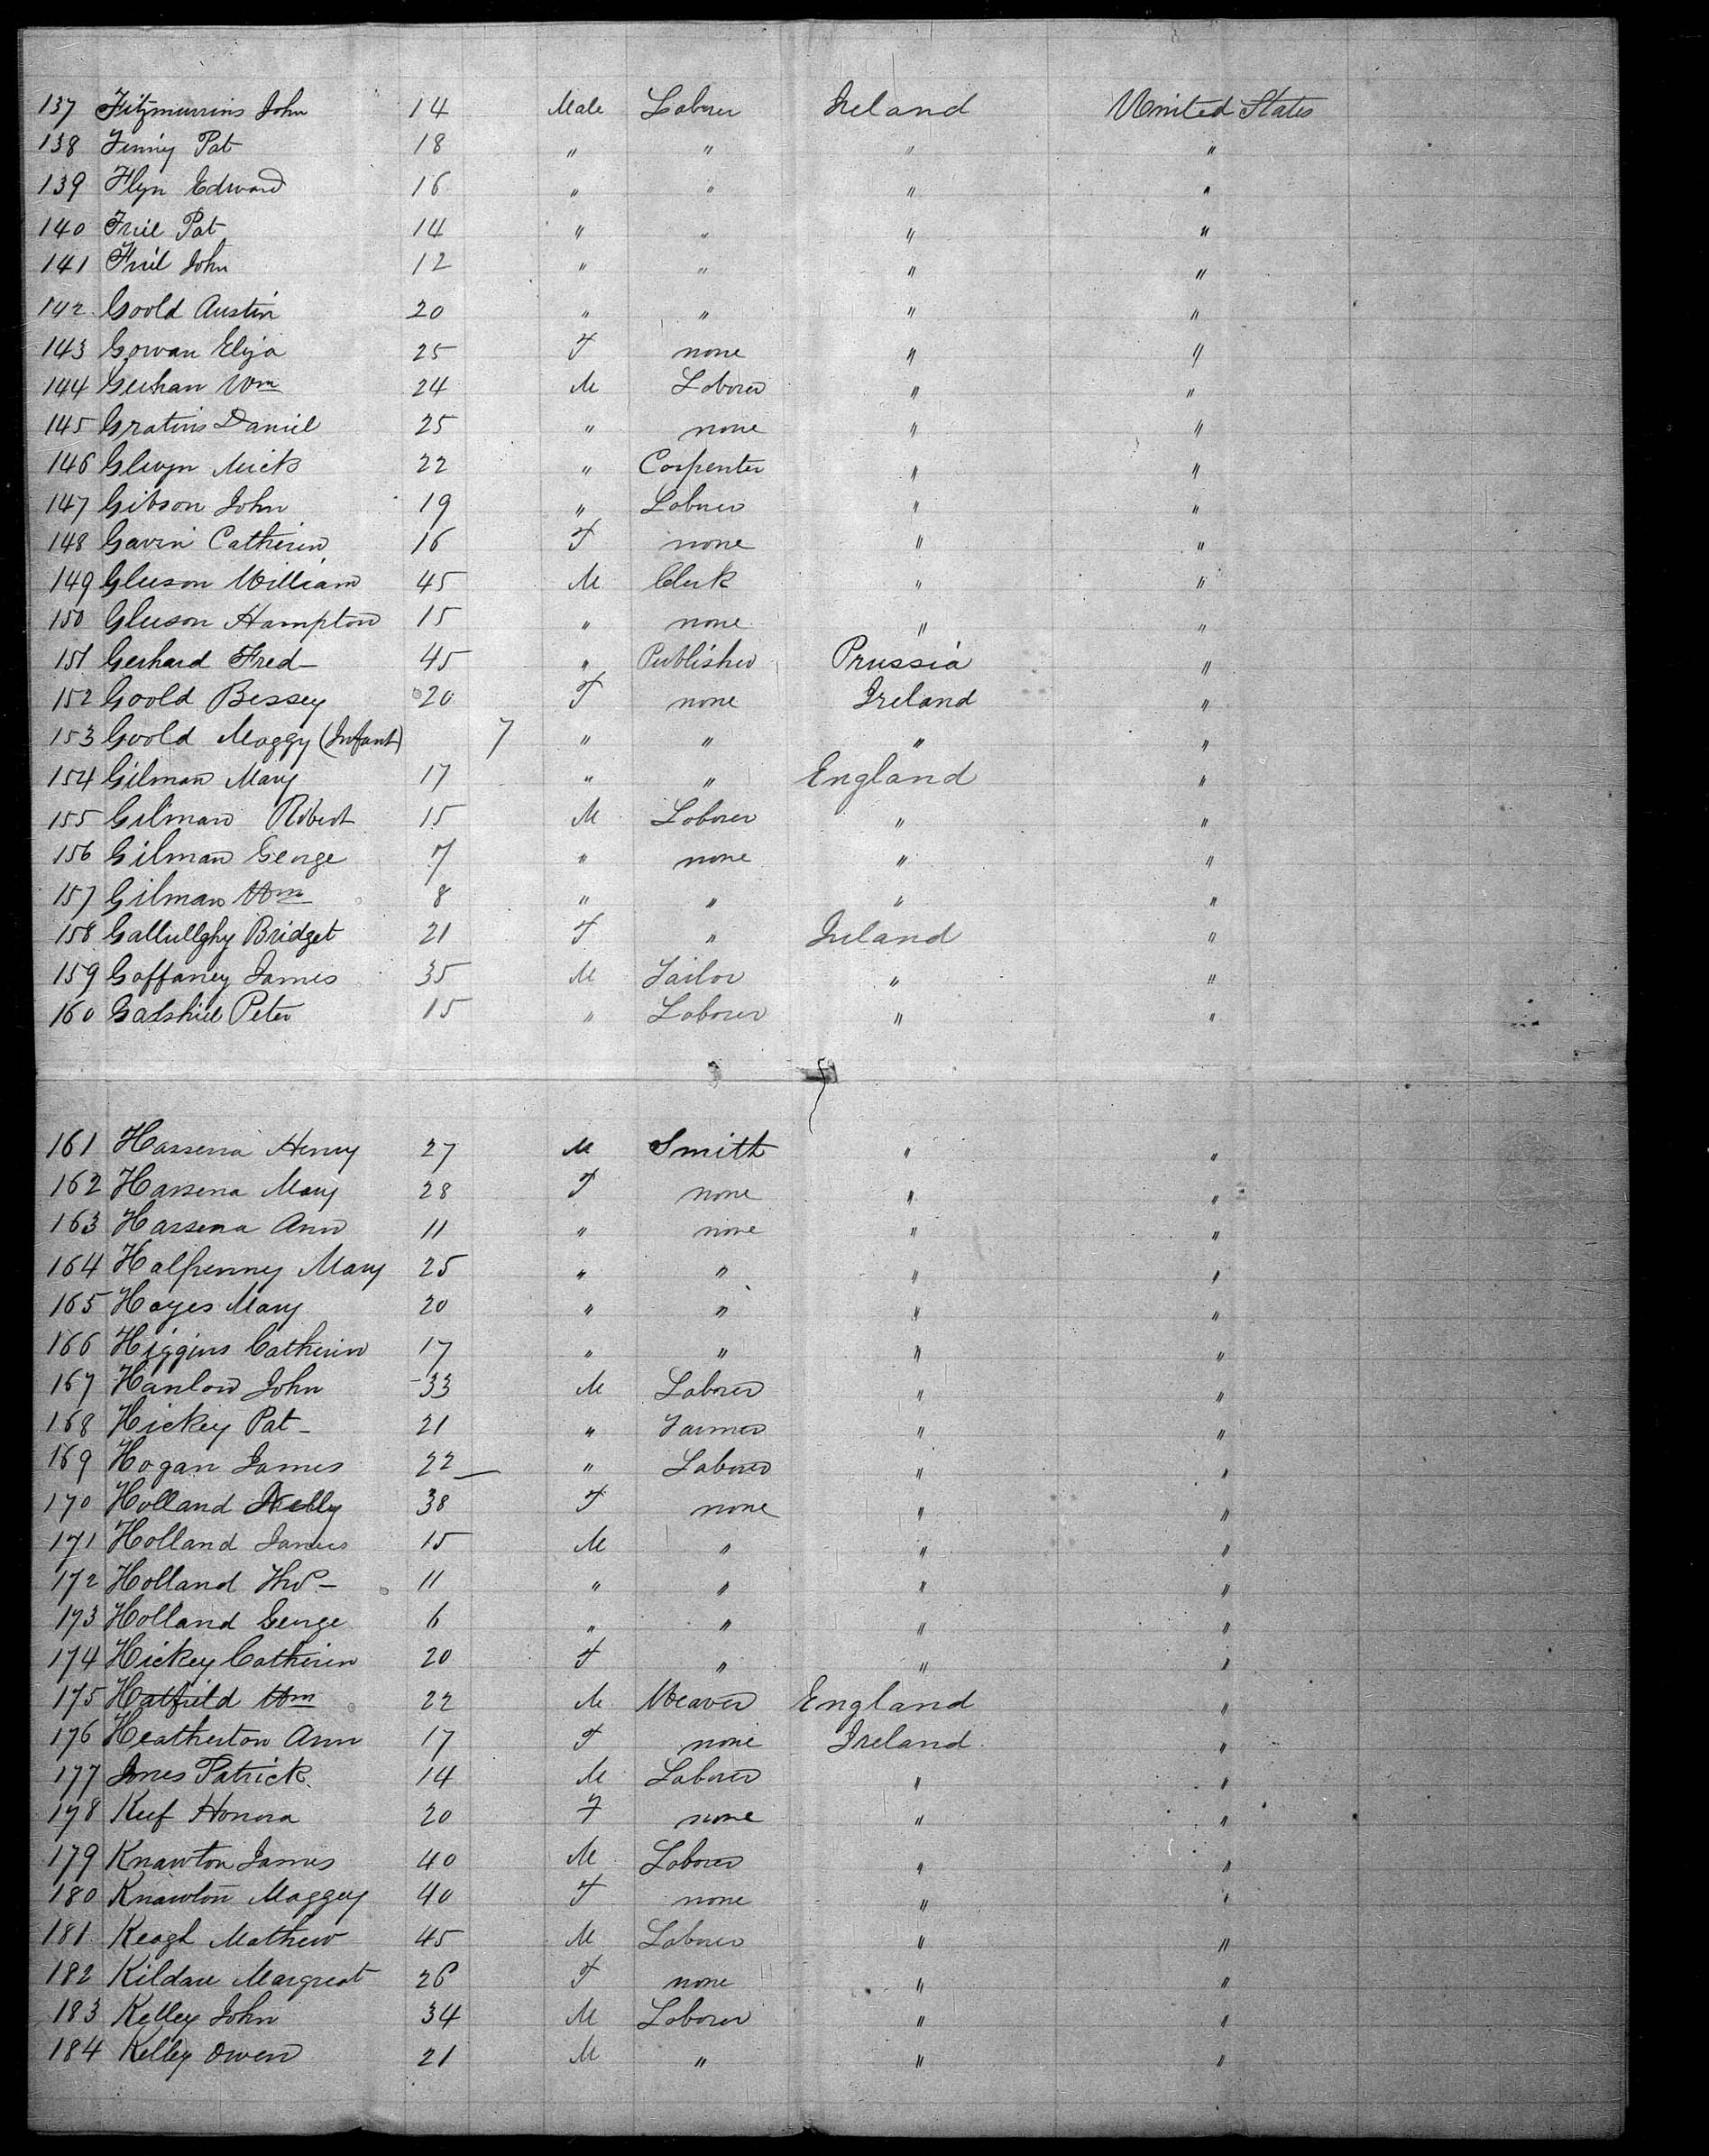 137 Fitzmurrins John 14 Male Laborer Ireland United States
138 Finny Pat 18 " " " "
139 Flyn Edward 16 " " " "
140 Friel Pat 14 " " " "
141 Friel John 12 " " " "
142 Goold Austin 20 " " " "
143 Gowan Eliza 25 F none " "
144 Geehan Wm 24 M Laborer " "
145 Daniel 25 " none " "
146 Glwyn Mick 22 " Carpenter " "
147 Gibson John 19 " Laborer " "
148 Gavin Catherin 16 F none " "
149 Gleeson William 45 M Clerk " "
150 Gleeson Hampton 15 " none " "
151 Gerhard Fred- 45 " Publisher Prussia "
152 Goold Bessey 20 F none Ireland "
153 Goold Maggy (Infant) 7 " " " "
154 Gilman Mary 17 " " England "
155 Gilman Robert 15 M Laborer " "
156 Gilman George 7 " none " "
157 Gilman Wm 8 " " " "
158 Gallullghy Bridget 21 F " Ireland "
159 Gaffaney James 35 M Tailor " "
160 Peter 15 " Laborer " "
161 Hassena Henry 27 M Smith " "
162 Hassena Mary 28 F none " "
163 Hassena Ann 11 " none " "
164 Halfpenny Mary 25 " " " "
165 Hayes Mary 20 " " " "
166 Higgins Catherin 17 " " " "
167 Hanlon John 33 M Laborer " "
168 Hickey Pat - 21 " Farmer " "
169 Hogan James 22 " Laborer " "
170 Holland Nelly 38 F none " "
171 Holland James 15 M " " "
172 Holland Thos - 11 " " " "
173 Holland George 6 " " " "
174 Hickey Catherin 20 F " " "
175 Hatfield Wm 22 M Weaver England "
176 Heatherton Ann 17 F none Ireland "
177 Jones Patrick 14 M Laborer " "
178 Keef Honora 20 F none " "
179 Knawton James 40 M Laborer " "
180 Knawton Maggey 40 F none " "
181 Keagh Mathew 45 M Laborer " "
182 Kildare Margreat 26 F none " "
183 Kelley John 34 M Laborer " "
184 Kelley Owen 21 M " " "